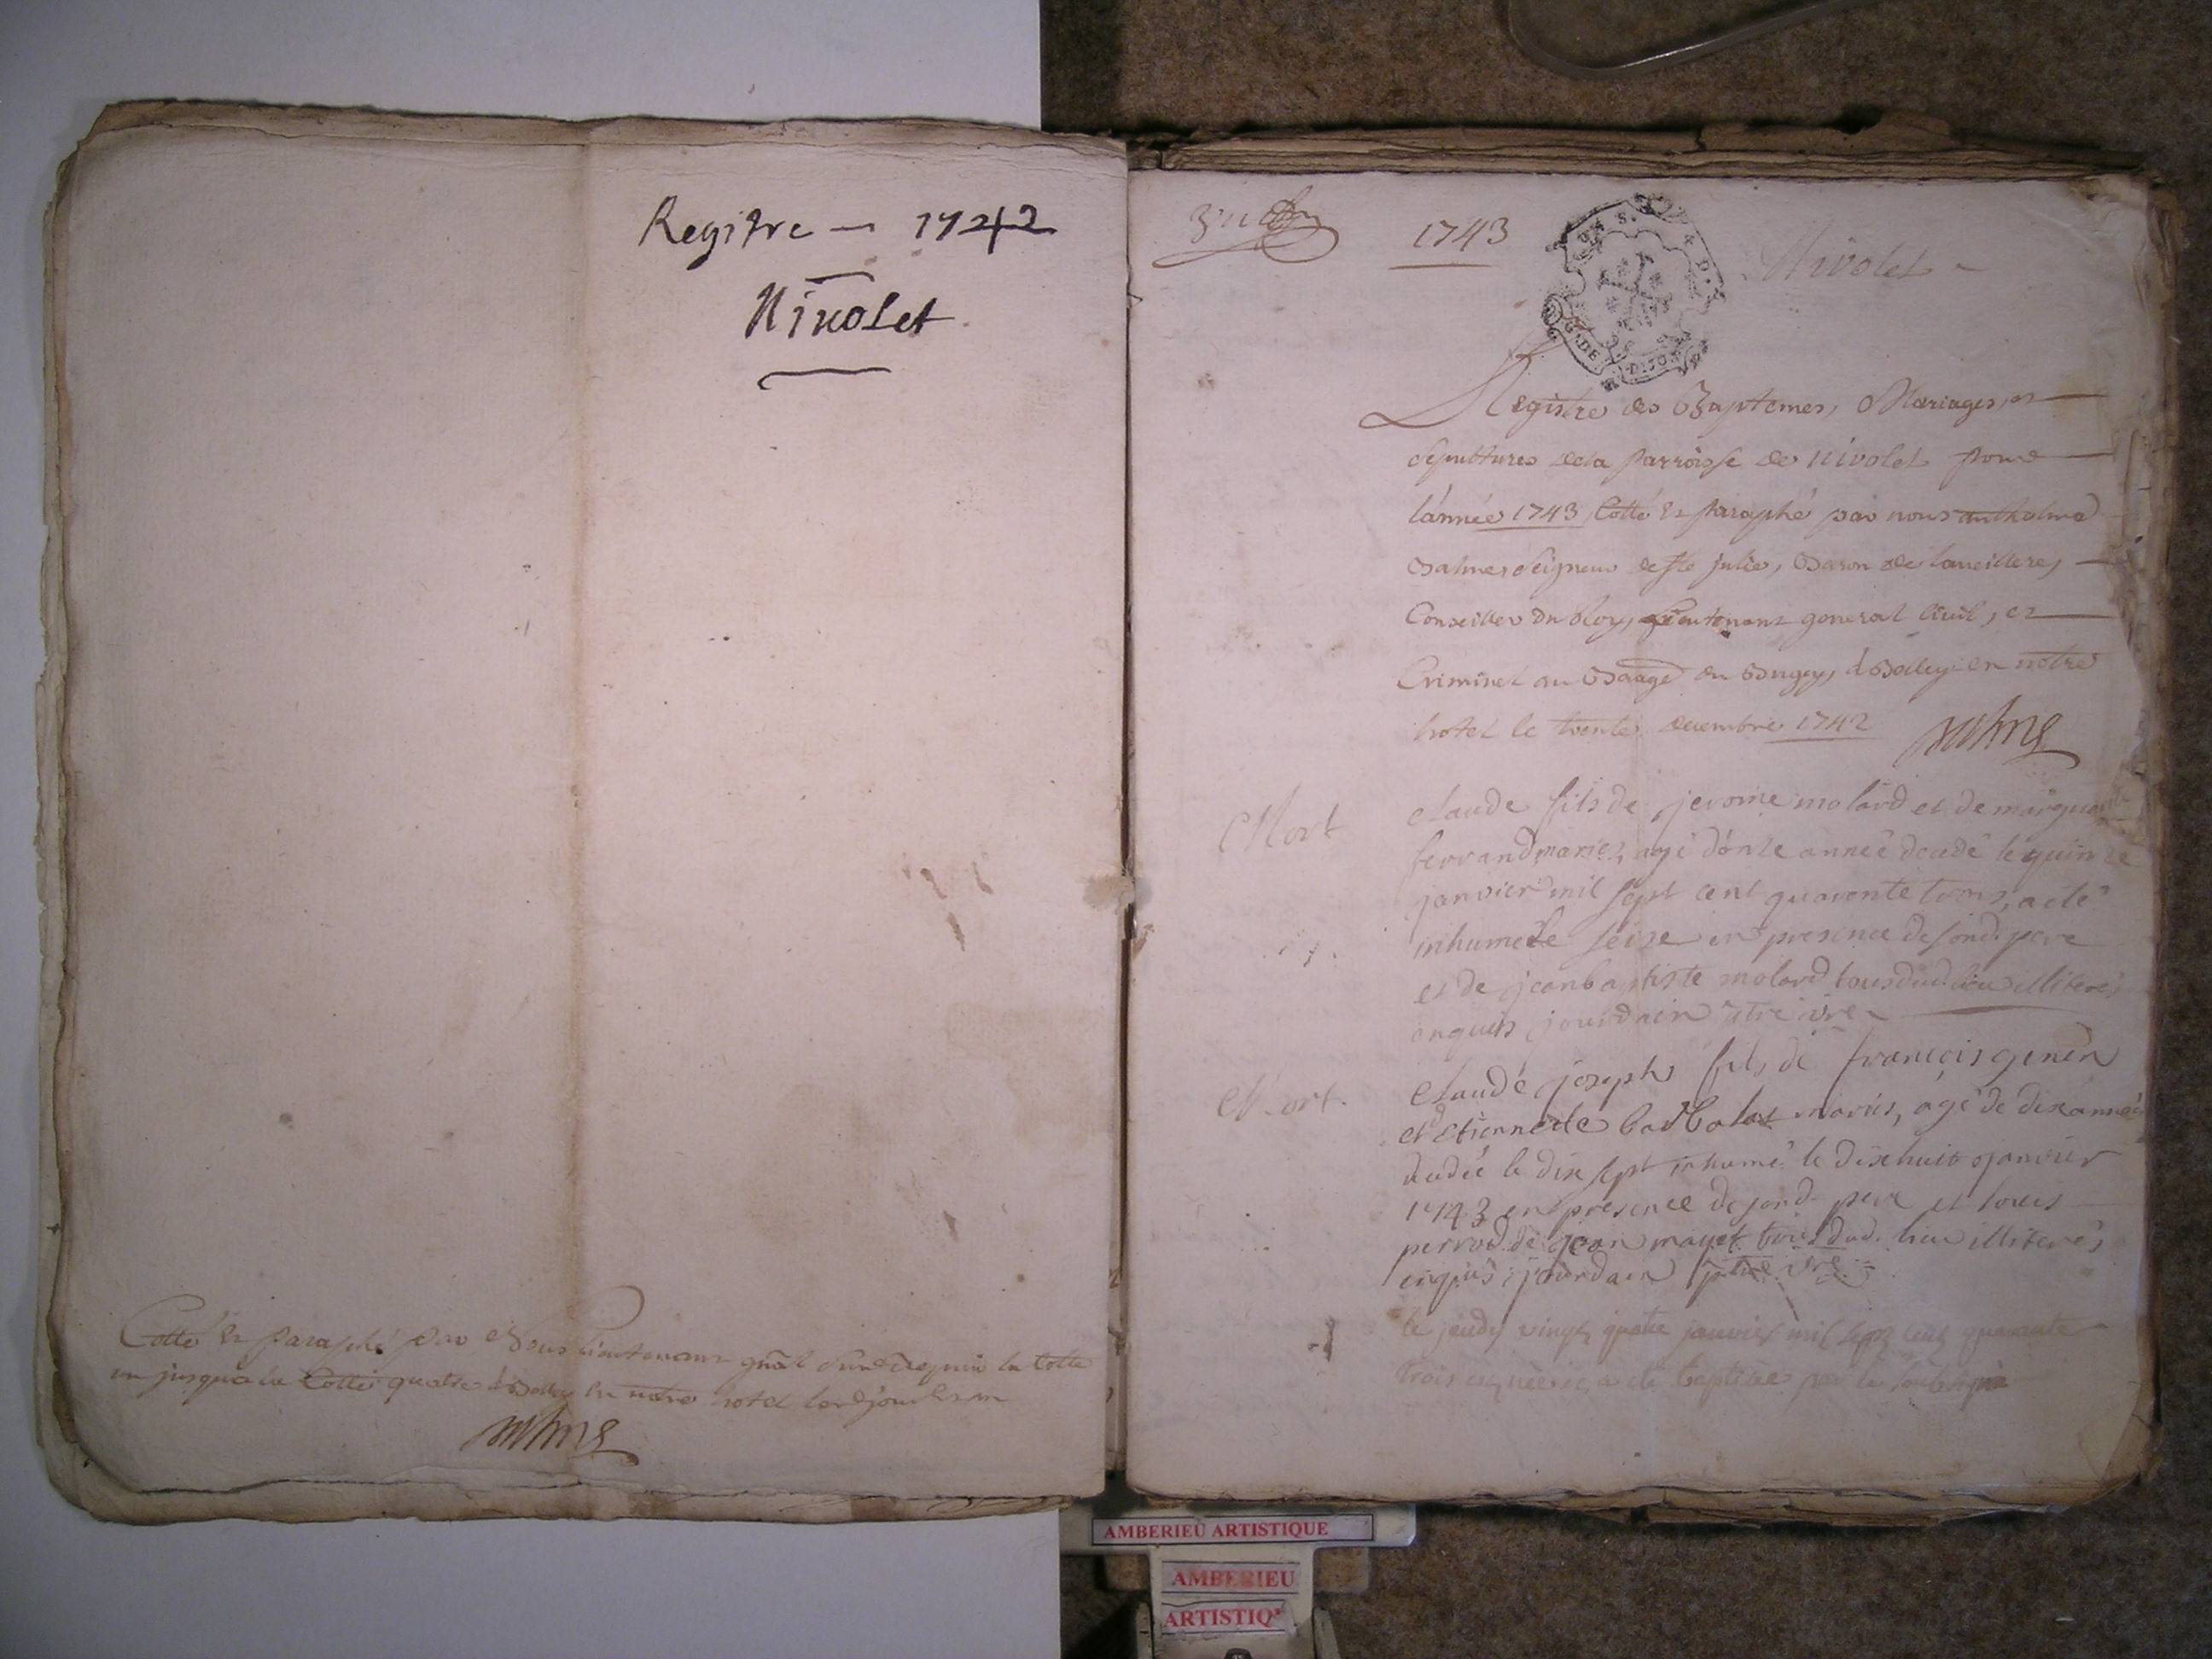 Registre — 1742
Nivolet
Cotté & paraphé par Nous Lieutenant gñal depuis la Cotte
un jusqua la Cotte quatre à Belley en notre hotel les jour & an
1743
Nivolet
Registre des Baptemes, Mariages, et
sepultures dela parroisse de Nivolet pour
l'année 1743 Cotté & paraphé par nous anthelme
Balme, Seigneur de Ste Julie, Baron de
Conseiller du Roy, Lieutenant general Civil, et
Criminel au Baage du Bugey, à Belley en notre
hotel le trente decembre 1742
Balme
Mort
claude fils de jerome molard et de
ferrand mariés, agé d'onze année decedé le quinze
janvier mil sept cent quarente trois, a eté
inhumé le seize en presence de sond. pere
et de jean baptiste molard tous dud. lieu illiterés
enquis jourdain
Mort.
claude joseph fils de françois genin
et d'etiennette mariés, agé de dix années
decedé le dix sept inhumé le dixhuit janvier
1743 en presence de sond. pere et louis
perrod de jean mayet tous dud. lieu illiterés
enquis jourdain ptre
le jeudy vingt quatre janvier mil sept cent quarante
trois est née et a été baptisée par le soubsigné
AMBERIEU ARTISTIQUE
AMBERIEU
ARTISTIQ